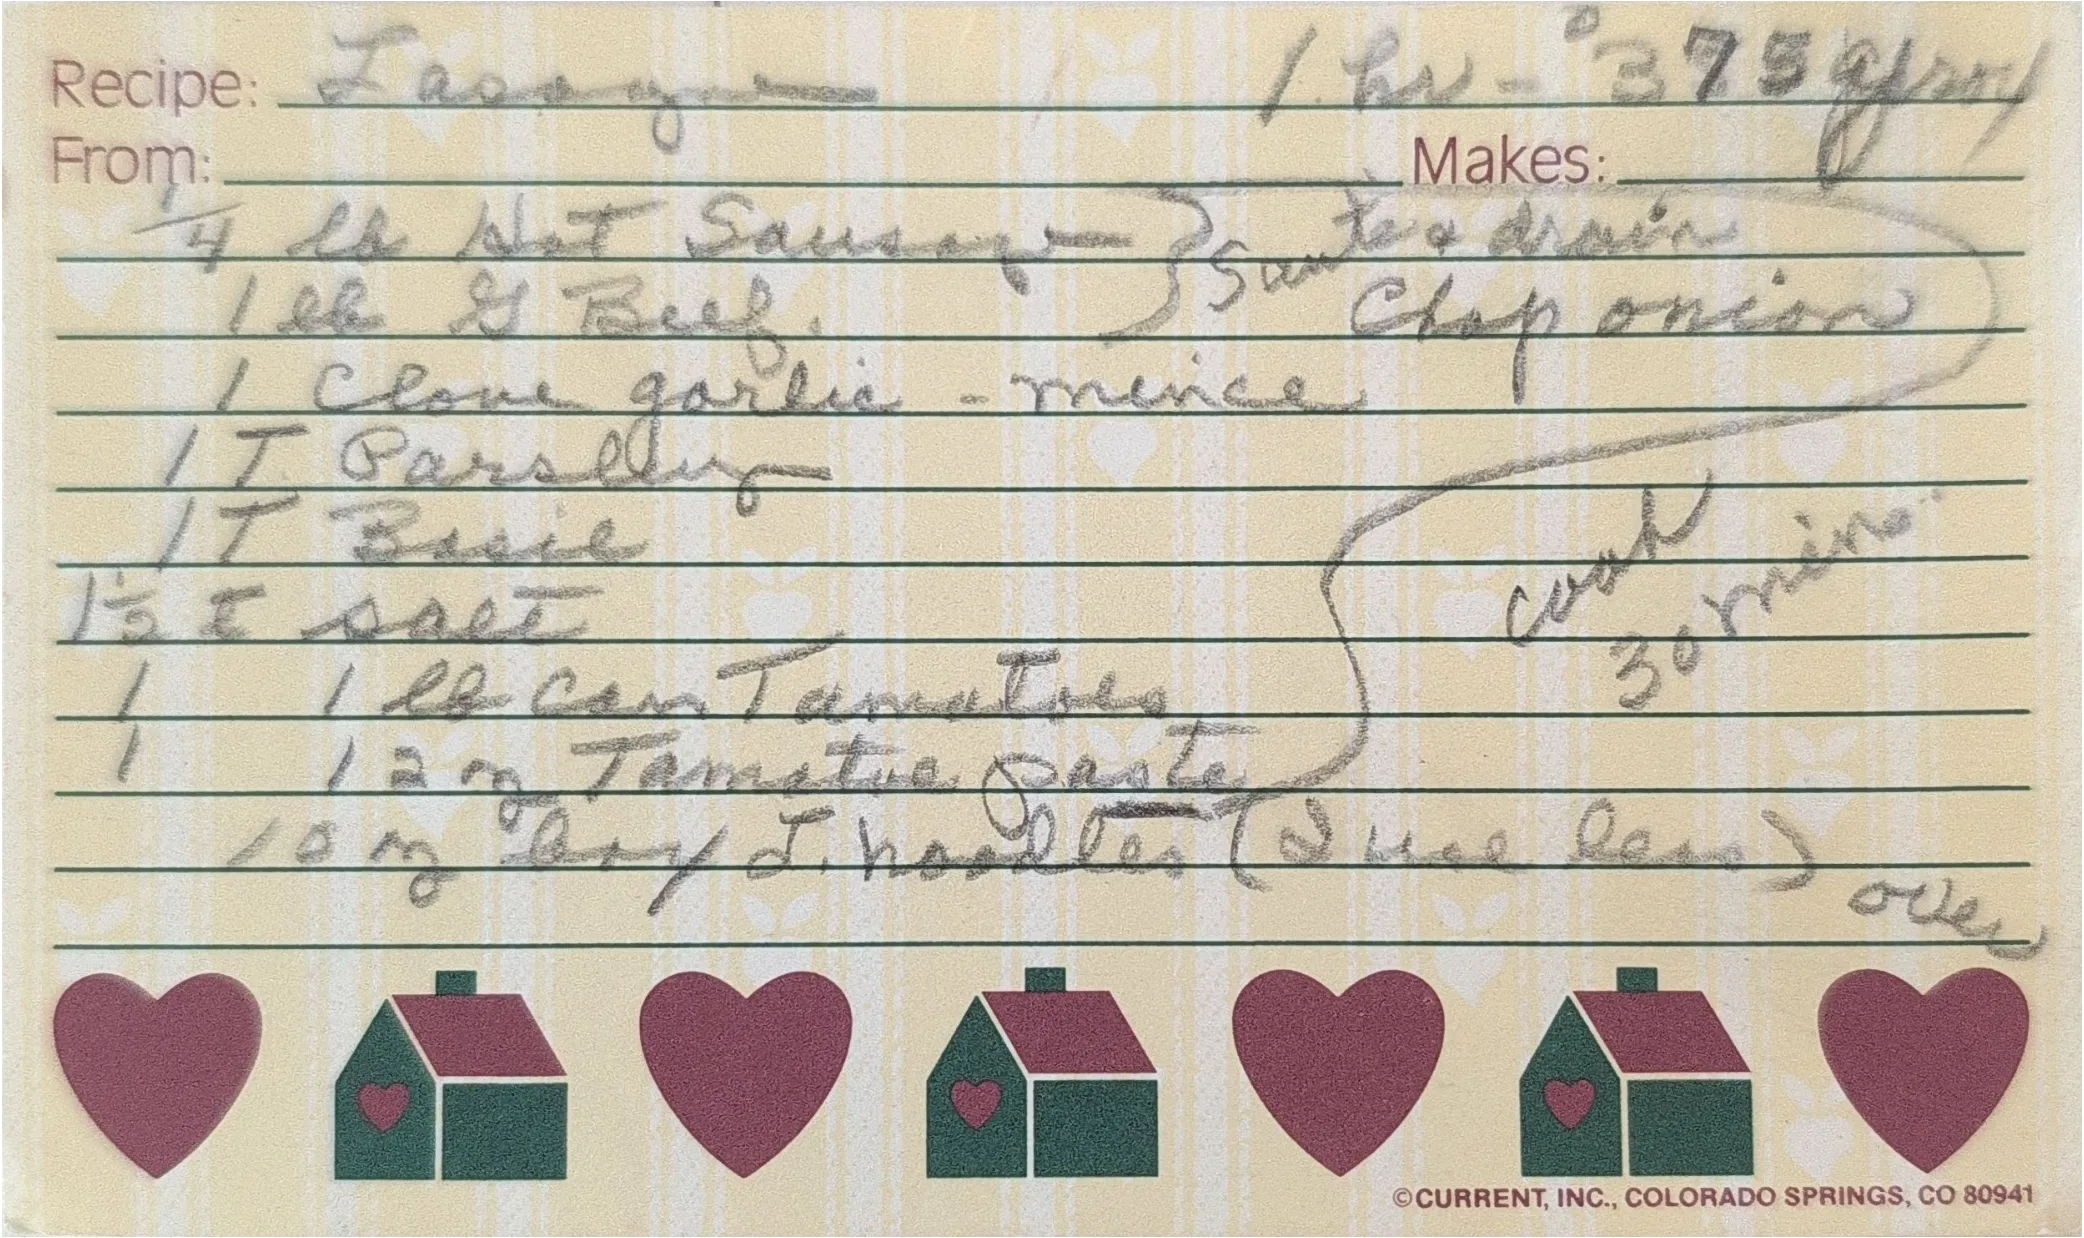 Recipe: Lasagne 1 hr - 375°
From: Makes:
1/4 lb Hot Sausage } Sauté & drain
1 lb G Beef. Chop onion
1 Clove garlic - mince
1 T Parsley
1 T Basil
1 1/2 t salt
cook
30 mins.
1 1 lb can Tomatoes
1 12 oz Tomatoe paste
10 oz box L. noodles (I use less)
over
©CURRENT, INC., COLORADO SPRINGS, CO 80941